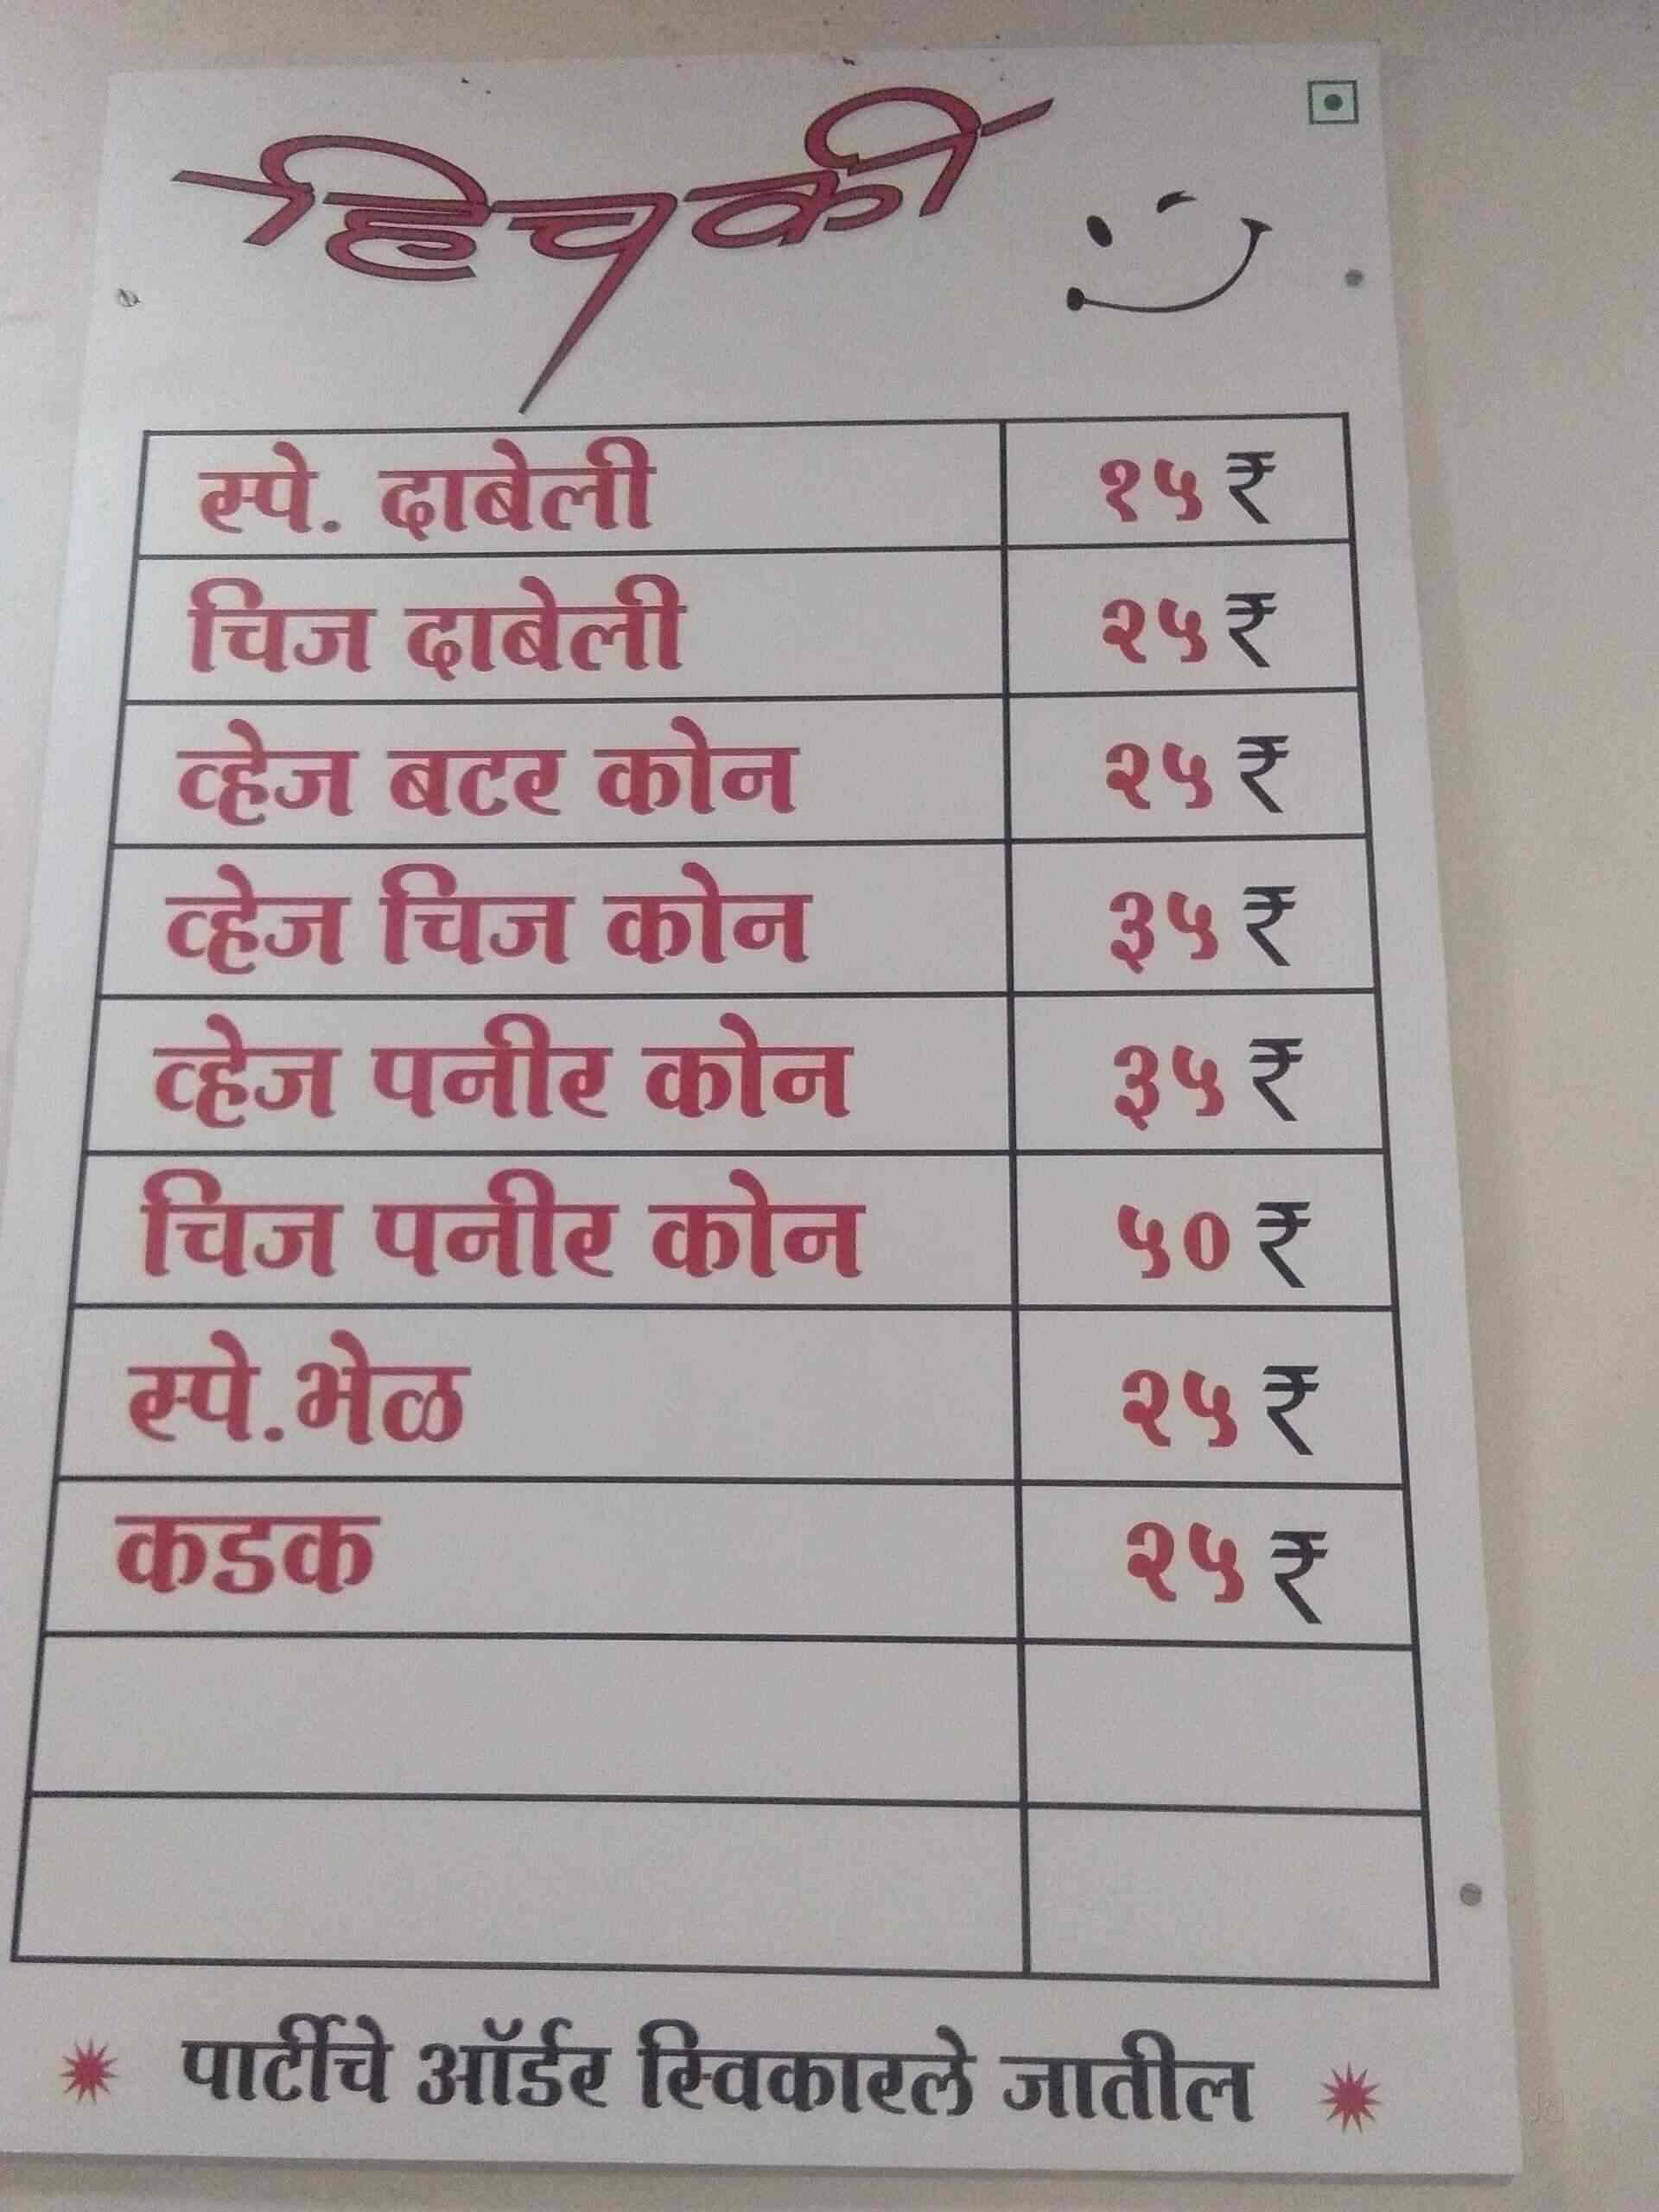 हिचकी
स्पे. दाबेली १५ ₹
चिज दाबेली २५ ₹
व्हेज बटर कोन २५ ₹
व्हेज चिज कोन ३५ ₹
व्हेज पनीर कोन ३५ ₹
चिज पनीर कोन ५० ₹
स्पे.भेळ २५ ₹
कडक २५ ₹
पार्टीचे ऑर्डर स्विकारले जातील